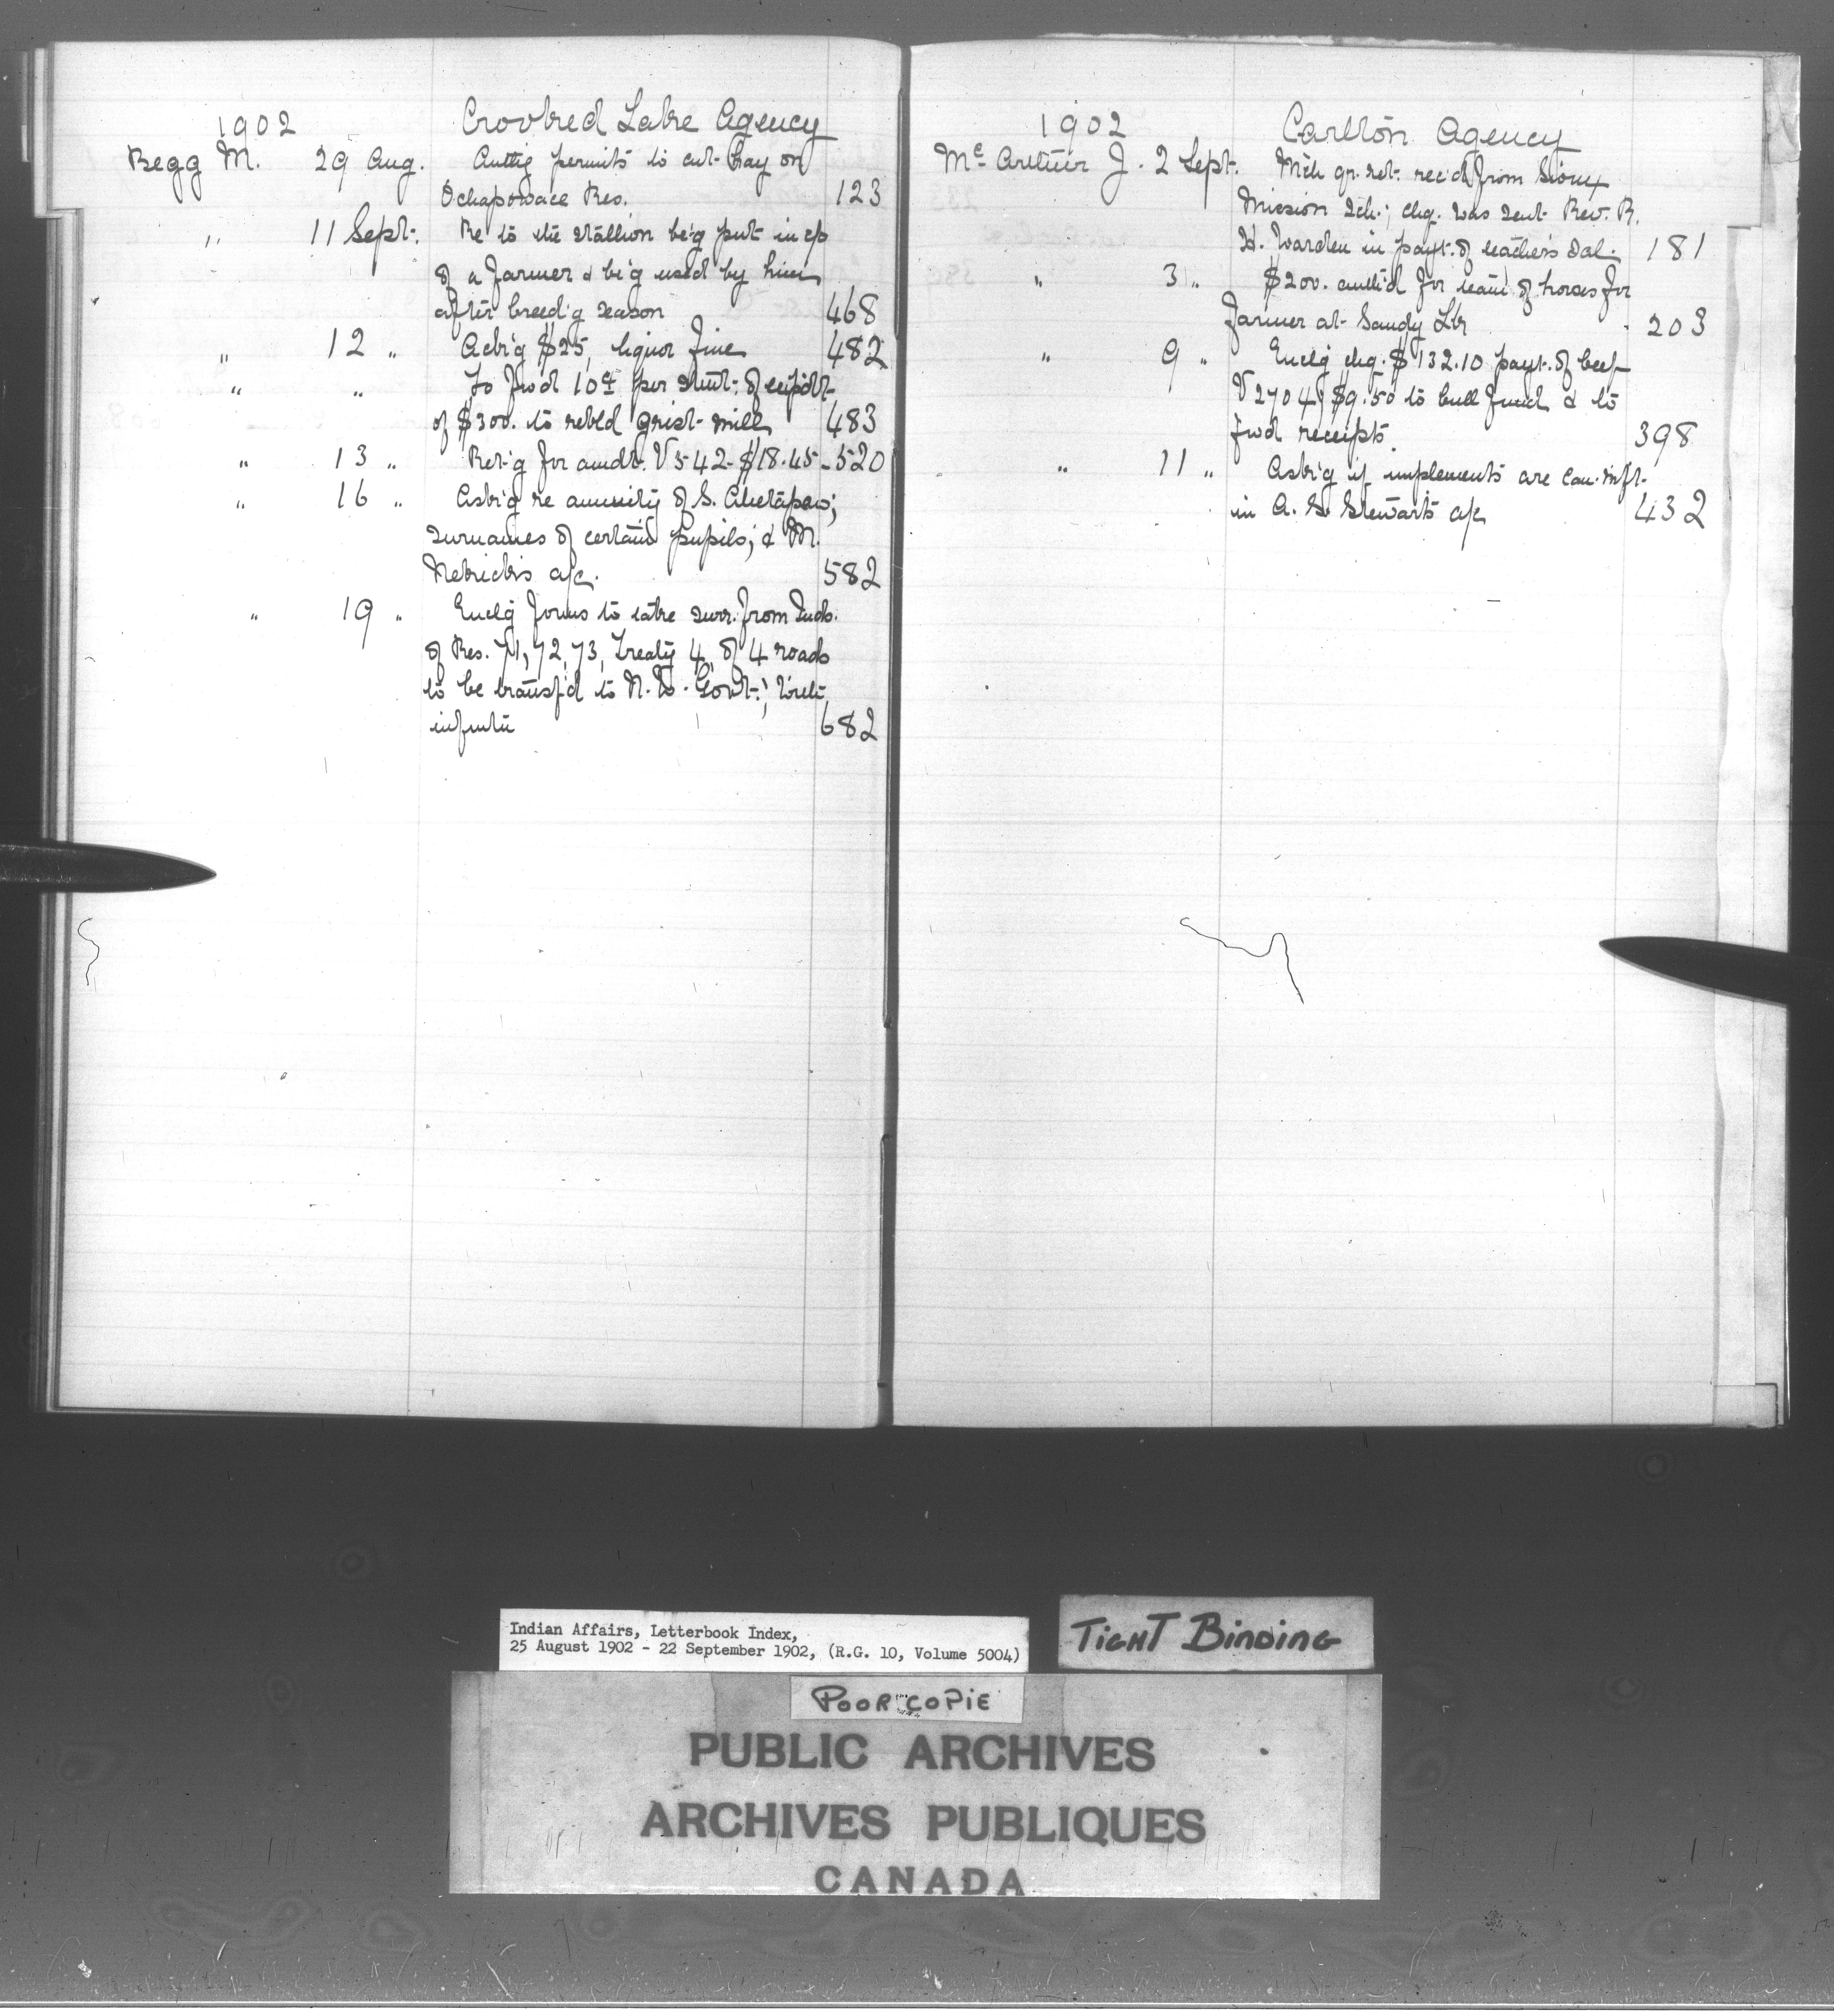 1902 Crooked Lake Agency
Begg M. 29 Aug. Authg permits to cut hay on
Ochapowace Res. 123
" 11 Sept. Re to the stallion be'g put in c/o
of a farmer & be'g used by him
after breed'g season 468
" 12 " Ack'g $25, liquor fine 482
" " To fwd 10% per stmt. of expdt.
of $300. to rebld grist mill 483
" 13 " Ret'g for amdt. V 542 - $18.45 - 520
" 16 " Ask'g re annuity of S.
surnames of certain pupils; & M.
a/c. 582
" 19 " Enclg forms to take surr. from Inds.
of Res. 71, 72, 73, Treaty 4, of 4 roads
to be transf'd to N.W. Govt.;
682
1902 Carlton Agency
Mc Arthur J. 2 Sept. qr. ret. rec'd from Sioux
Mission Sch.; chq. was sent Rev. R.
H. Warden in payt. of teacher's sal. 181
" 3 " $200. auth'd for team of horses for
farmer at Sandy Lk 203
" 9 " Enclg chq. $132.10 payt. of beef
V 2704, $9.50 to bull fund & to
fwd receipts 398
" 11 " Ask'g if implements are Can. mft.
in A. G. Stewart's a/c 432
Indian Affairs, Letterbook Index,
25 August 1902 - 22 September 1902, (R.G. 10, Volume 5004)
TIGHT BINDING
POOR COPIE
PUBLIC ARCHIVES
ARCHIVES PUBLIQUES
CANADA